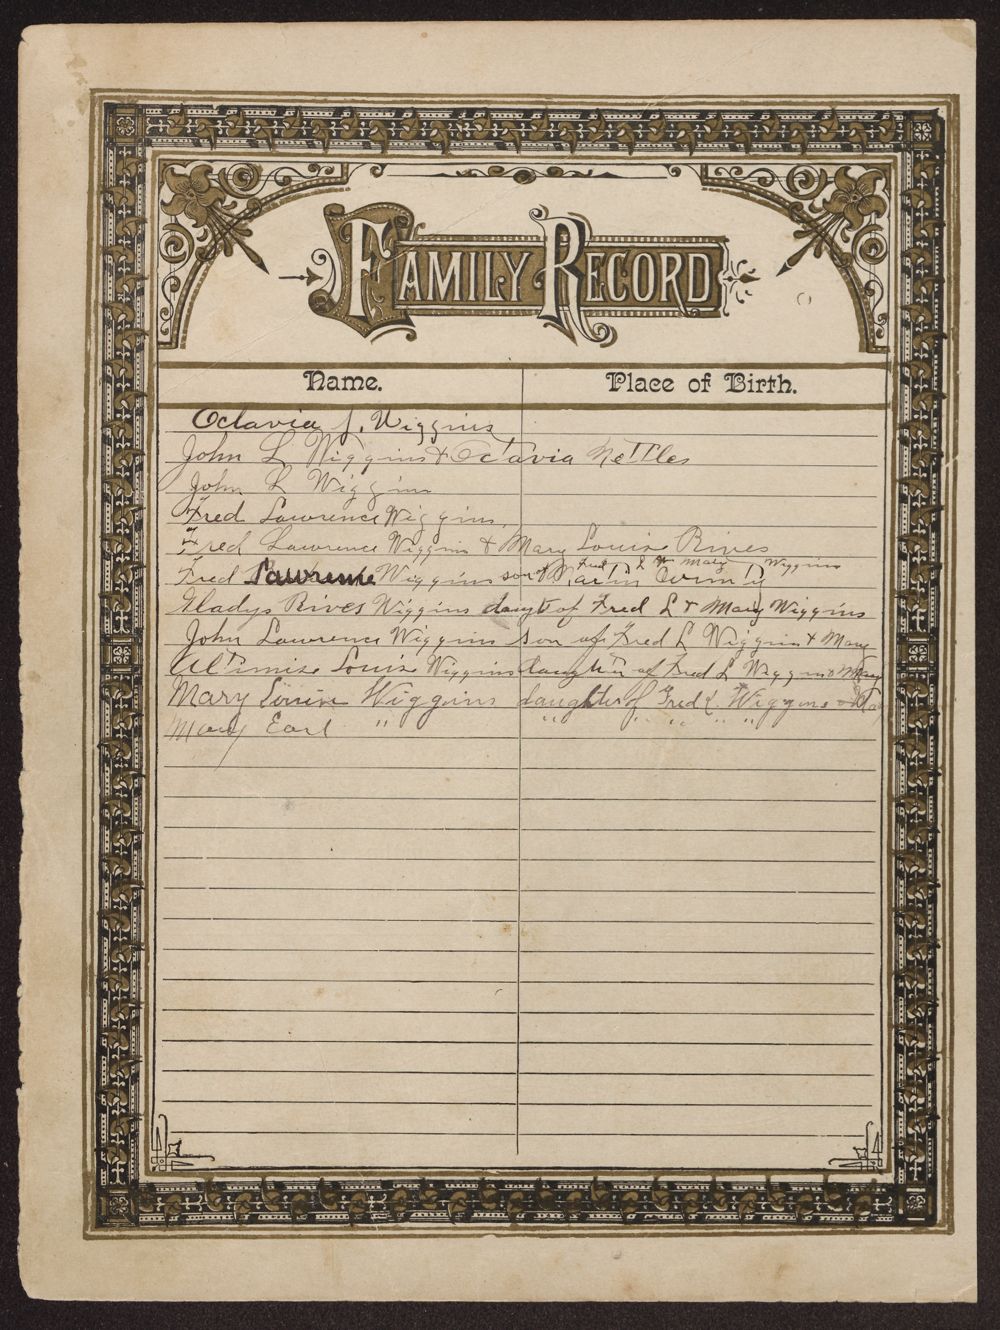 FAMILY RECORD
Name. Place of Birth.
Octavia J. Wiggins
John L Wiggins & Octavia Nettles
John L Wiggins
Fred Lawrence Wiggins
Fred Lawrence Wiggins & Mary Louise Rives
Fred Lawrence Wiggins son of Fred L & Mary Wiggins
Gladys Rives Wiggins daugt of Fred L & Mary Wiggins
John Lawrence Wiggins son of Fred L Wiggins & Mary
Louise Wiggins daughter of Fred L Wiggins & Mary
Mary Louise Wiggins daughter of Fred L. Wiggins & Mary
Mary Earl " " " " " "